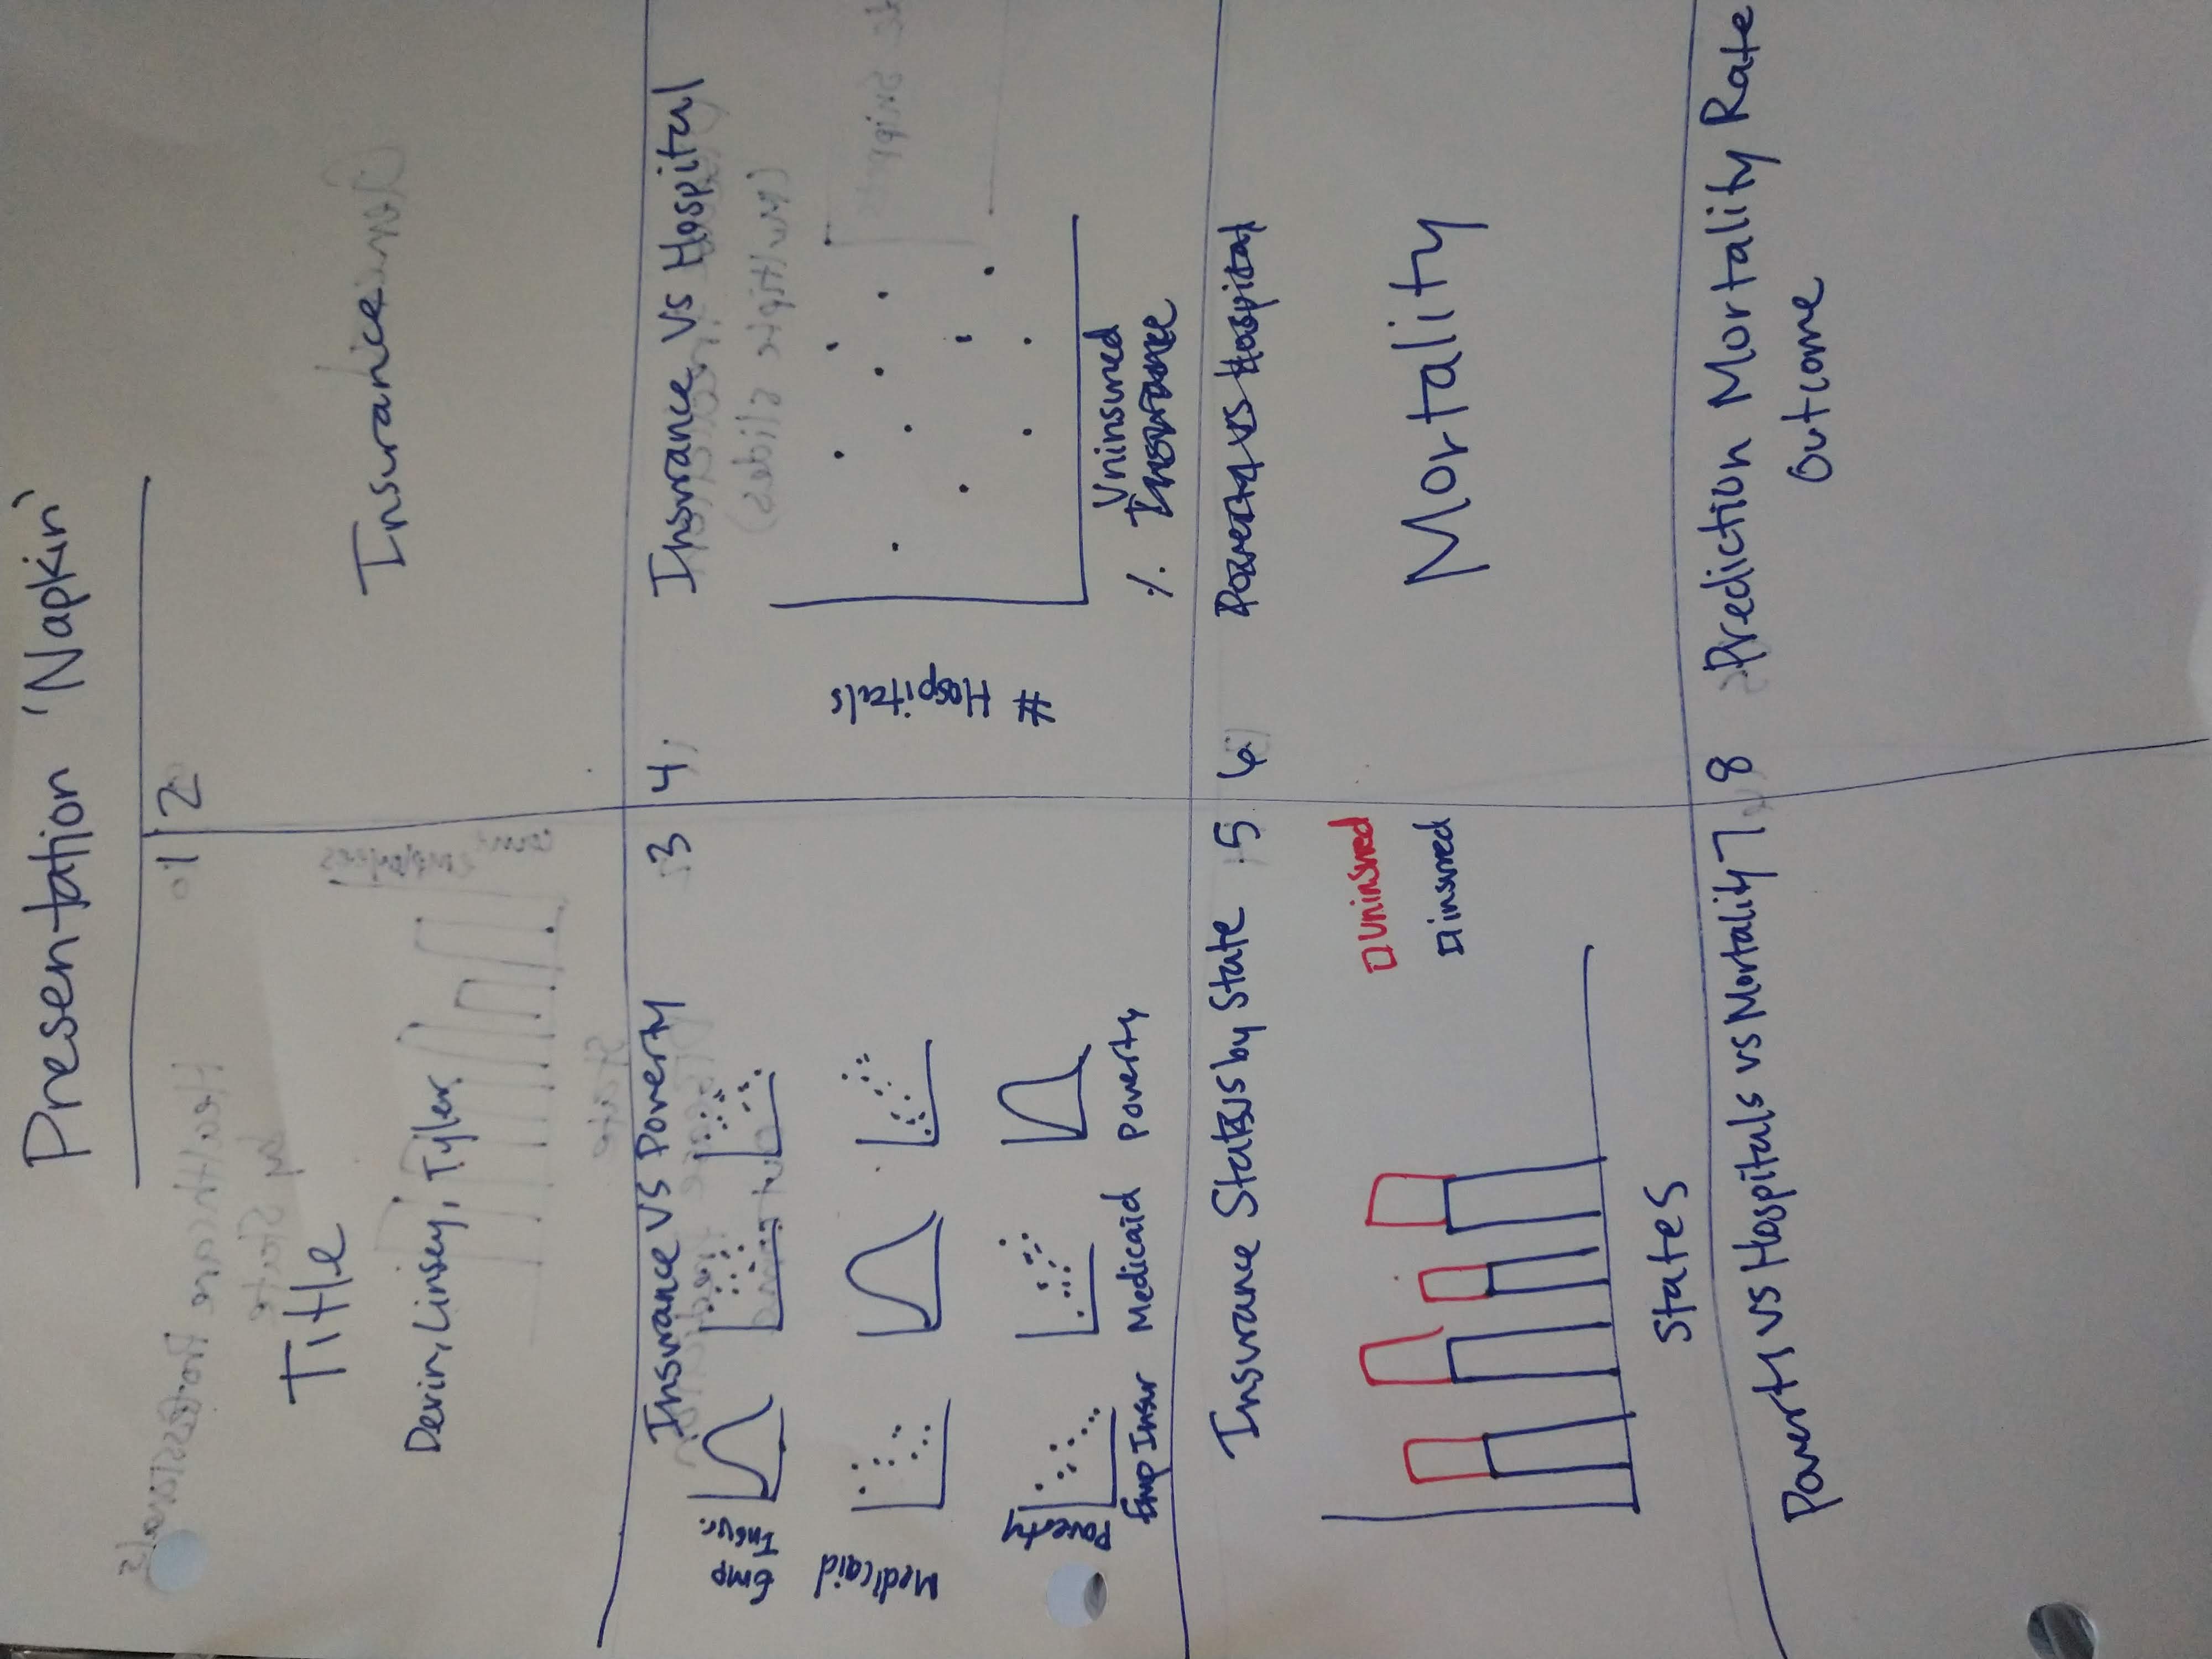 Presentation 'Napkin'
1
Title
Devin, Linsey, Tyler
2
Insurance
Insurance VS Poverty 3
Emp
Insur.
Medicaid
Poverty
Emp Insur Medicaid Poverty
4. Insurance VS Hospital
# Hospitals
Uninsured
% Insurance
Insurance Status by State 5
Uninsured
insured
States
6. Poverty VS Hospital
Mortality
Poverty VS Hospitals vs Mortality 7
8 Prediction Mortality Rate
Outcome
Healthcare Professionals
by State
State
(multiple slides)